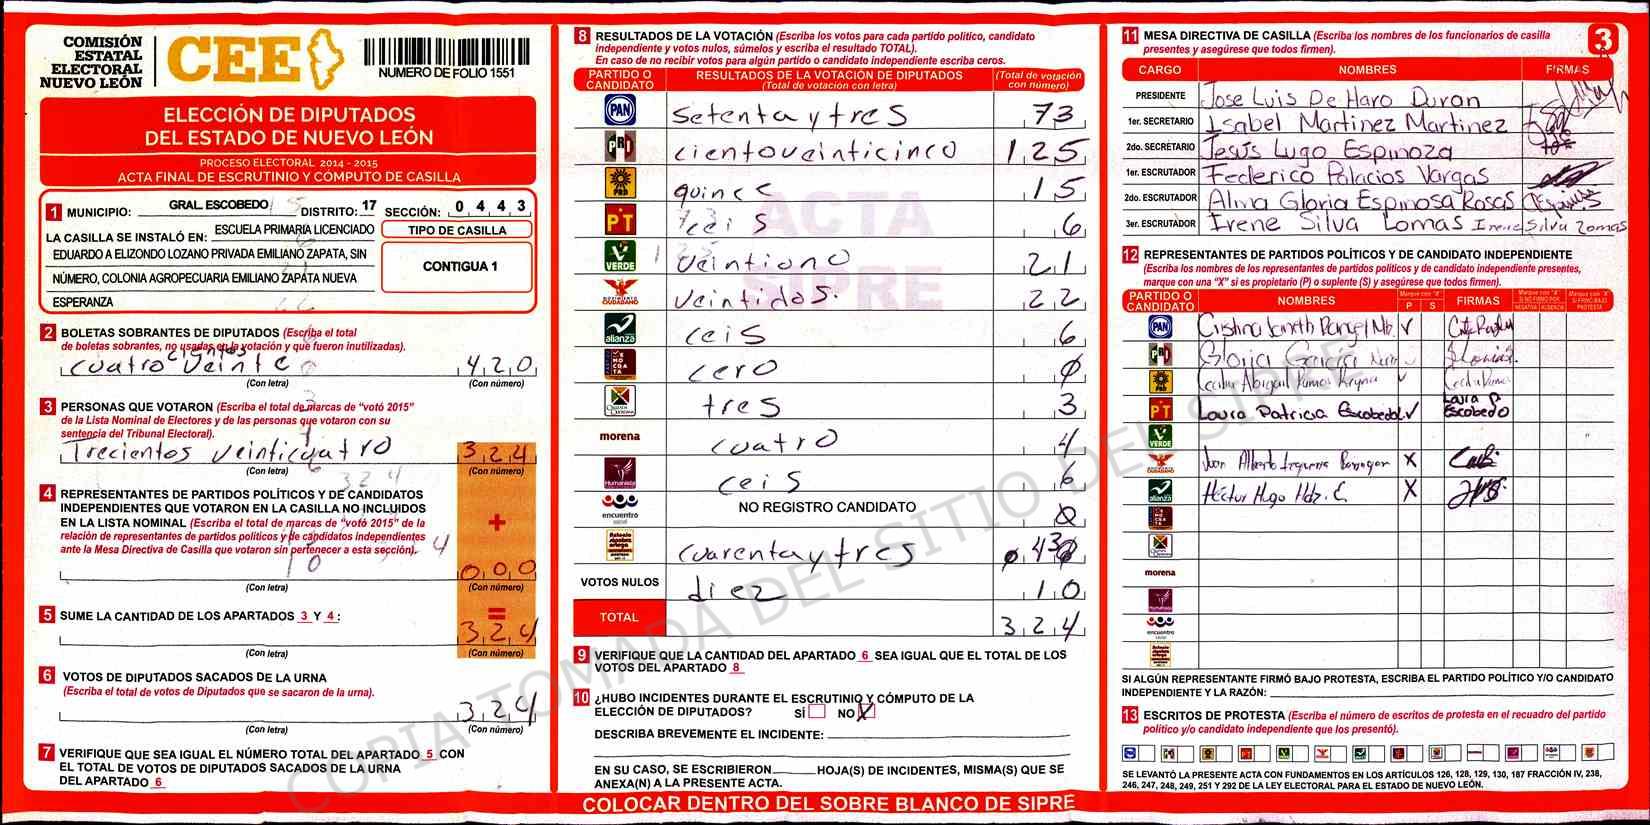 COMISIÓN
ESTATAL
ELECTORAL
NUEVO LEÓN
CEE
NUMERO DE FOLIO 1551
ELECCIÓN DE DIPUTADOS
DEL ESTADO DE NUEVO LEÓN
PROCESO ELECTORAL 2014 - 2015
ACTA FINAL DE ESCRUTINIO Y CÓMPUTO DE CASILLA
1 MUNICIPIO: GRAL. ESCOBEDO DISTRITO: 17 SECCIÓN: 0 4 4 3
LA CASILLA SE INSTALÓ EN: ESCUELA PRIMARIA LICENCIADO
EDUARDO A ELIZONDO LOZANO PRIVADA EMILIANO ZAPATA, SIN
NÚMERO, COLONIA AGROPECUARIA EMILIANO ZAPATA NUEVA
ESPERANZA
TIPO DE CASILLA
CONTIGUA 1
2 BOLETAS SOBRANTES DE DIPUTADOS (Escriba el total
de boletas sobrantes, no usadas en la votación y que fueron inutilizadas).
cuatrocientos veinte 420
(Con letra) (Con número)
3 PERSONAS QUE VOTARON (Escriba el total de marcas de “votó 2015”
de la Lista Nominal de Electores y de las personas que votaron con su
sentencia del Tribunal Electoral).
Trecientos veinticuatro 324
(Con letra) (Con número)
4 REPRESENTANTES DE PARTIDOS POLÍTICOS Y DE CANDIDATOS
INDEPENDIENTES QUE VOTARON EN LA CASILLA NO INCLUIDOS
EN LA LISTA NOMINAL (Escriba el total de marcas de “votó 2015” de la
relación de representantes de partidos políticos y de candidatos independientes
ante la Mesa Directiva de Casilla que votaron sin pertenecer a esta sección).
+
000
(Con letra) (Con número)
=
5 SUME LA CANTIDAD DE LOS APARTADOS 3 Y 4:
324
(Con letra) (Con número)
6 VOTOS DE DIPUTADOS SACADOS DE LA URNA
(Escriba el total de votos de Diputados que se sacaron de la urna).
324
(Con letra) (Con número)
7 VERIFIQUE QUE SEA IGUAL EL NÚMERO TOTAL DEL APARTADO 5 CON
EL TOTAL DE VOTOS DE DIPUTADOS SACADOS DE LA URNA
DEL APARTADO 6
8 RESULTADOS DE LA VOTACIÓN (Escriba los votos para cada partido político, candidato
independiente y votos nulos, súmelos y escriba el resultado TOTAL).
En caso de no recibir votos para algún partido o candidato independiente escriba ceros.
PARTIDO O CANDIDATO RESULTADOS DE LA VOTACIÓN DE DIPUTADOS (Total de votación con letra) (Total de votación con número)
PAN setenta y tres 73
PRI cientoveinticinco 125
PRD quince 15
PT ceis 6
VERDE veintiuno 21
MOVIMIENTO CIUDADANO veintidos. 22
alianza ceis 6
DEMOCRATA cero 0
CRUZADA CIUDADANA tres 3
morena cuatro 4
Humanista ceis 6
encuentro social NO REGISTRO CANDIDATO 0
cuarenta y tres 43
VOTOS NULOS diez 10
TOTAL 324
ACTA
SIPRE
9 VERIFIQUE QUE LA CANTIDAD DEL APARTADO 6 SEA IGUAL QUE EL TOTAL DE LOS
VOTOS DEL APARTADO 8
10 ¿HUBO INCIDENTES DURANTE EL ESCRUTINIO Y CÓMPUTO DE LA
ELECCIÓN DE DIPUTADOS? SÍ NO X
DESCRIBA BREVEMENTE EL INCIDENTE:
EN SU CASO, SE ESCRIBIERON HOJA(S) DE INCIDENTES, MISMA(S) QUE SE
ANEXA(N) A LA PRESENTE ACTA.
COLOCAR DENTRO DEL SOBRE BLANCO DE SIPRE
11 MESA DIRECTIVA DE CASILLA (Escriba los nombres de los funcionarios de casilla
presentes y asegúrese que todos firmen).
3
CARGO NOMBRES FIRMAS
PRESIDENTE Jose Luis De Haro Duron
1er. SECRETARIO Isabel Martinez Martinez
2do. SECRETARIO Jesús Lugo Espinoza
1er. ESCRUTADOR Federico Palacios Vargas
2do. ESCRUTADOR Alma Gloria Espinosa Rosas
3er. ESCRUTADOR Irene Silva Lomas Irene Silva Lomas
12 REPRESENTANTES DE PARTIDOS POLÍTICOS Y DE CANDIDATO INDEPENDIENTE
(Escriba los nombres de los representantes de partidos políticos y de candidato independiente presentes,
marque con una “X” si es propietario (P) o suplente (S) y asegúrese que todos firmen).
PARTIDO O CANDIDATO NOMBRES Marque con "X" P S FIRMAS
PAN Cristina
PRI Gloria
PRD Abigail Ramos
PT Laura Patricia Escobedo Laura P. Escobedo
VERDE
Juan Alberto X
alianza Héctor Hugo Hdz. X
morena
Humanista
encuentro
SI ALGÚN REPRESENTANTE FIRMÓ BAJO PROTESTA, ESCRIBA EL PARTIDO POLÍTICO Y/O CANDIDATO
INDEPENDIENTE Y LA RAZÓN:
13 ESCRITOS DE PROTESTA (Escriba el número de escritos de protesta en el recuadro del partido
político y/o candidato independiente que los presentó).
SE LEVANTÓ LA PRESENTE ACTA CON FUNDAMENTOS EN LOS ARTÍCULOS 126, 128, 129, 130, 187 FRACCIÓN IV, 238,
246, 247, 248, 249, 251 Y 292 DE LA LEY ELECTORAL PARA EL ESTADO DE NUEVO LEÓN.
COPIA TOMADA DEL SITIO DEL SIPRE